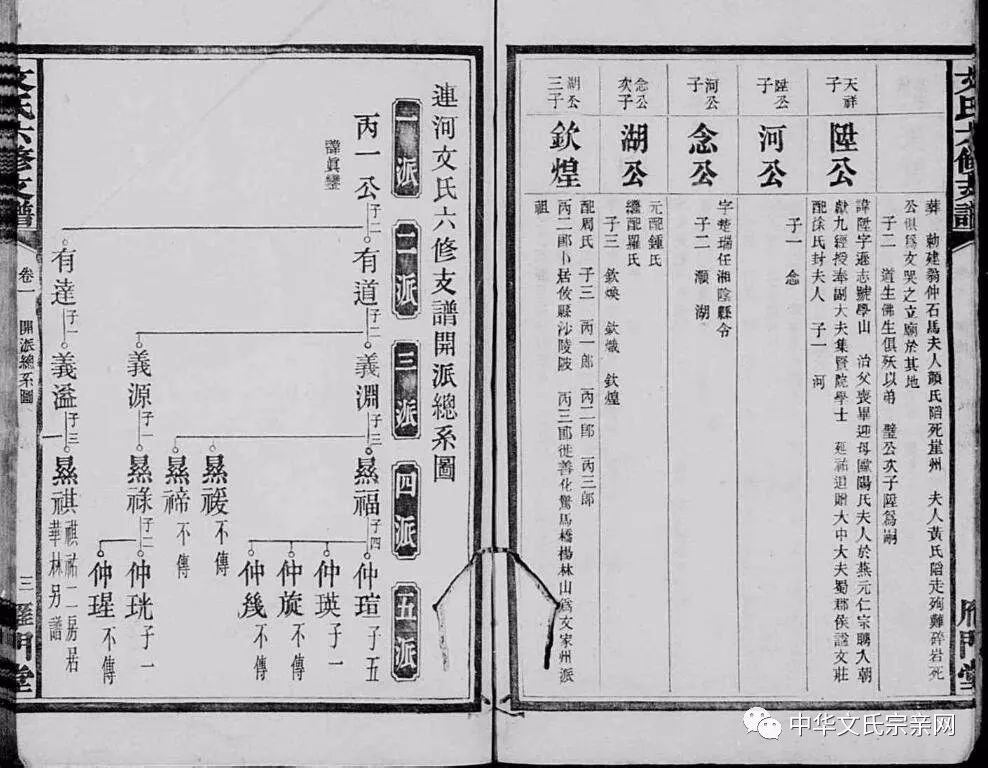 文氏六修支譜
雁門堂
葬 勅建翁仲石馬夫人顏氏陷死崖州 夫人黃氏陷走殉難碎岩死
公俱爲文哭之立廟於其地
子二 道生佛生俱殀以弟 璧公次子陞爲嗣
天祥子
陞公
諱陞字遜志號學山 治父喪畢迎母歐陽氏夫人於燕元仁宗聘入朝
獻九經授奉副大夫集賢院學士 延祐追贈大中大夫蜀郡侯諡文莊
配徐氏封夫人 子一 河
陞公子
河公
子一 念
河公子
念公
字楚瑞任湘陰縣令
子二 灝 湖
念公次子
湖公
元配鍾氏
繼配羅氏
子三 欽煥 欽熾 欽煌
湖公三子
欽煌
配周氏 子三 丙一郎 丙二郎 丙三郎
丙二郎卜居攸縣沙陵陂 丙三郎徙善化驚馬橋楊林山爲文家州派
祖
連河文氏六修支譜開派總系圖
一派 二派 三派 四派 五派
丙一公
諱眞鑾
子二
有道 子二
義淵 子三
暴福 子四
仲瑄 子五
仲瑛 子一
仲旋 不傳
仲幾 不傳
暴禐 不傳
暴禘 不傳
義源 子一
暴祿 子二
仲珖 子一
仲瑆 不傳
有達 子一
義溢 子三
暴祺 祺祐二房居華林另譜
文氏六修支譜
卷一 開派總系圖
三
雁門堂
中华文氏宗亲网